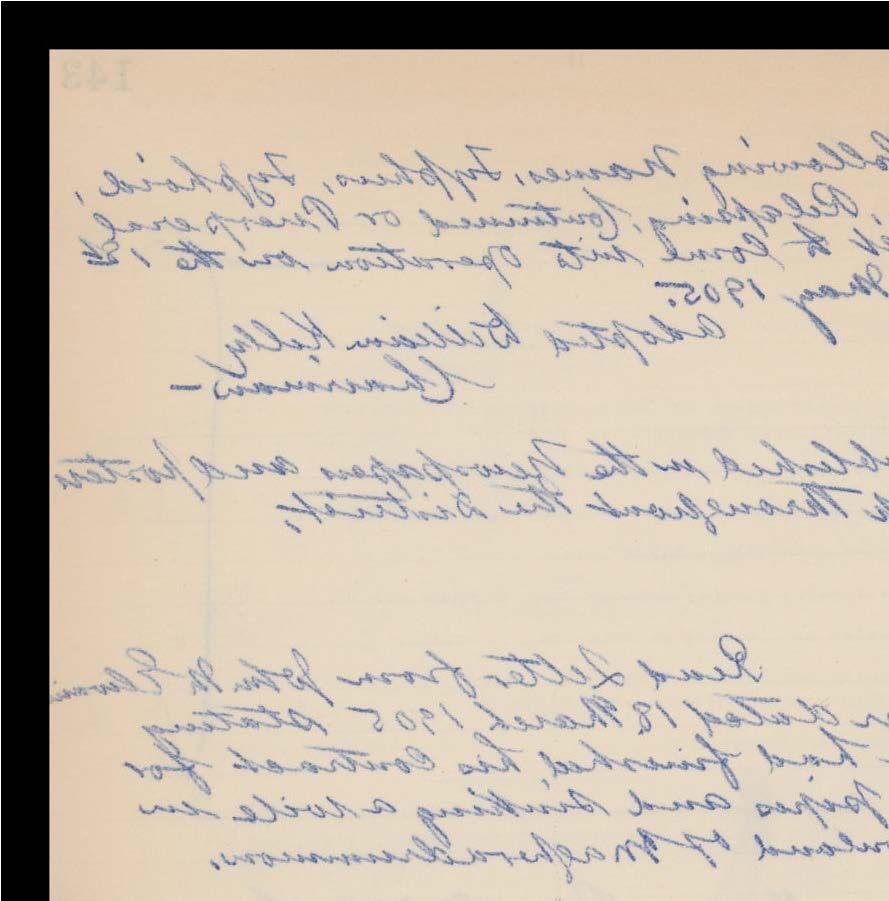 143
following names, Typhus, Typhoid,
Relapsing, Continued or Puerperal,
to Come into operation on the 1st
May 1905.
Adopted William Kelly
Chairman –
in the Newspapers and posters
Throughout the District.
Read Letter from John Mc
dated 18 March 1905 stating
had finished his Contract for
pipes and sinking a well in
of Magheradrummon.